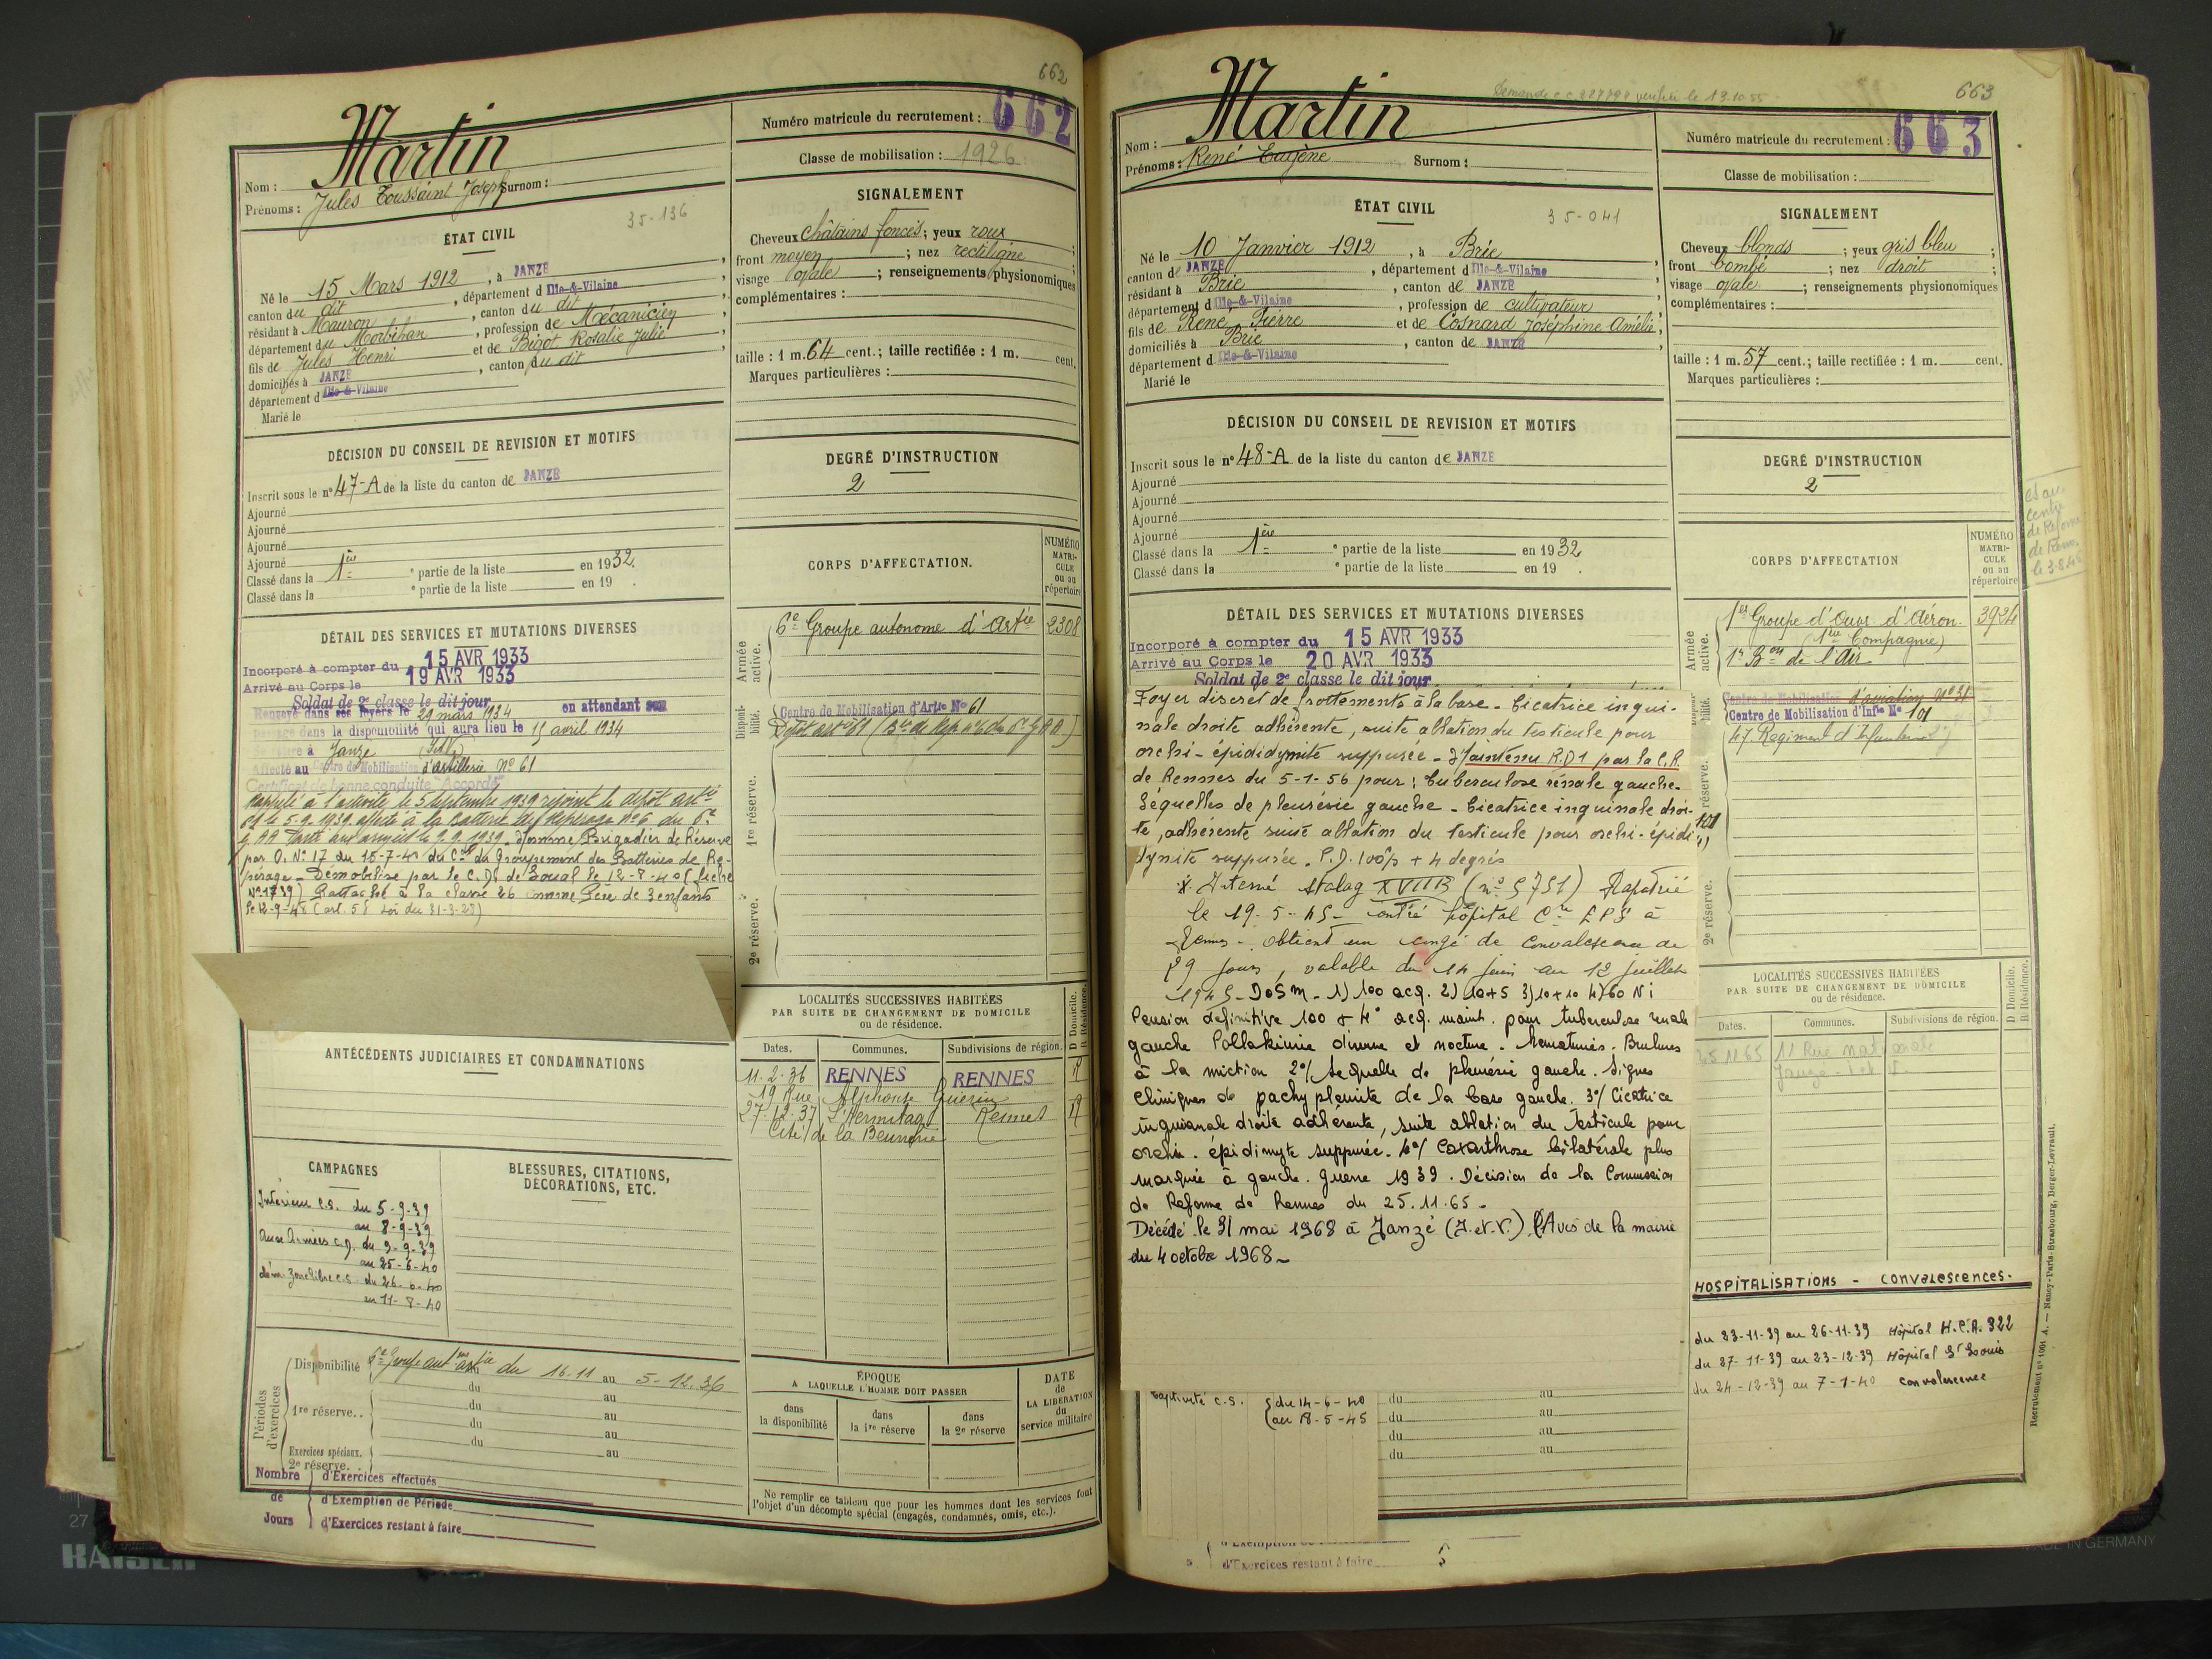 662
Martin
Nom :
Prénoms : Jules Toussaint Joseph Surnom :
35-136
ÉTAT CIVIL
Né le 15 Mars 1912, à JANZÉ
canton du dit, département d Ille-&-Vilaine
résidant à Mauron, canton du dit
département du Morbihan, profession de Mécanicien
fils de Jules Henri et de Bigot Rosalie Julie
domiciliés à JANZÉ, canton du dit
département d Ille-&-Vilaine
Marié le
DÉCISION DU CONSEIL DE REVISION ET MOTIFS
Inscrit sous le n° 47-A de la liste du canton de JANZÉ
Ajourné
Ajourné
Ajourné
Ajourné
Classé dans la 1ère e partie de la liste en 1932.
Classé dans la e partie de la liste en 19 .
DÉTAIL DES SERVICES ET MUTATIONS DIVERSES
Incorporé à compter du 15 AVR 1933
Arrivé au Corps le 19 AVR 1933
Soldat de 2e classe le dit jour
Renvoyé dans ses foyers le 29 mars 1934 en attendant son
passage dans la disponibilité qui aura lieu le 15 avril 1934
à Janzé (I&V)
Affecté au Centre de Mobilisation d'artillerie N° 61
Certificat de bonne conduite "Accordé"
Rappelé à l'activité le 5 septembre 1939 rejoint le dépôt artie
61 le 5.9.1939. affecté à la Batterie de Repérage N°6 du 6e
G AA Parti aux armées le 9.9.1939. Nommé Brigadier de Réserve
par O. N° 17 du 15-7-40 du Ct du Groupement des Batteries de Re-
pérage - Démobilisé par le C.D. de Soual le 12-8-40 (fiche
N° 1739) Rattaché à la classe 26 comme Père de 3 enfants
le 12-9-48 (art. 58 Loi du 31-3-28)
ANTÉCÉDENTS JUDICIAIRES ET CONDAMNATIONS
CAMPAGNES
Intérieur C.S. du 5-9-39
au 8-9-39
Aux Armées C.D. du 9-9-39
au 25-6-40
dém. Zone libre C.S. du 26-6-40
au 11-8-40
BLESSURES, CITATIONS,
DÉCORATIONS, ETC.
Périodes d'exercices
Disponibilité 6e Groupe autme artie du 16.11 au 5-12.36
du au
1re réserve.. du au
du au
du au
Exercices spéciaux. au
2e réserve.
Nombre d'Exercices effectués
de d'Exemption de Période
Jours d'Exercices restant à faire
Numéro matricule du recrutement : 662
Classe de mobilisation : 1926
SIGNALEMENT
Cheveux châtains foncés ; yeux roux ;
front moyen ; nez rectiligne ;
visage ovale ; renseignements physionomiques
complémentaires :
taille : 1 m. 64 cent.; taille rectifiée : 1 m. cent.
Marques particulières :
DEGRÉ D'INSTRUCTION
2
CORPS D'AFFECTATION.
NUMÉRO
MATRI-
CULE
ou au
répertoire
Armée active.
6e Groupe autonome d'Artie 2308
Disponibilité.
Centre de Mobilisation d'Artie N° 61
1re réserve.
2e réserve.
LOCALITÉS SUCCESSIVES HABITÉES
PAR SUITE DE CHANGEMENT DE DOMICILE
ou de résidence.
D Domicile.
R Résidence.
Dates. Communes. Subdivisions de région.
11.2.36 RENNES RENNES R
19 Rue Alphonse Guérin
27-12-37 L'Hermitage Rennes R
Cité de la
ÉPOQUE
A LAQUELLE L'HOMME DOIT PASSER
dans la disponibilité
dans la 1re réserve
dans la 2e réserve
DATE
de
LA LIBÉRATION
du
service militaire
Ne remplir ce tableau que pour les hommes dont les services font
l'objet d'un décompte spécial (engagés, condamnés, omis, etc.).
663
Martin
Nom :
Prénoms : René Eugène Surnom :
ÉTAT CIVIL
35-041
Né le 10 Janvier 1912, à Brie
canton de JANZÉ, département d Ille-&-Vilaine
résidant à Brie, canton de JANZÉ
département d Ille-&-Vilaine, profession de cultivateur
fils de René, Pierre et de Cosnard Joséphine Amélie,
domiciliés à Brie, canton de JANZÉ
département d Ille-&-Vilaine
Marié le
DÉCISION DU CONSEIL DE REVISION ET MOTIFS
Inscrit sous le n° 48-A de la liste du canton de JANZÉ
Ajourné
Ajourné
Ajourné
Ajourné
Classé dans la 1ère e partie de la liste en 1932
Classé dans la e partie de la liste en 19 .
DÉTAIL DES SERVICES ET MUTATIONS DIVERSES
Incorporé à compter du 15 AVR 1933
Arrivé au Corps le 20 AVR 1933
Soldat de 2e classe le dit jour
Foyer discret de frottements à la base. Cicatrice ingui-
nale droite adhérente, suite ablation du testicule pour
orchi-épididymite suppurée. Maintenu R.D1 par la C.R.
de Rennes du 5-1-56 pour : tuberculose rénale gauche.
Séquelles de pleurésie gauche. Cicatrice inguinale droi-
te, adhérente suite ablation du testicule pour orchi-épidi-
dymite suppurée. P.D. 100% + 4 degrés
X. Interné Stalag XVIIB (n° 5751) Rapatrié
le 19-5-45 - entré hôpital Cre EPS à
Rennes - obtient un congé de convalescence de
29 jours, valable du 14 juin au 12 juillet
1945 - DOSM - 1) 100 acq. 2) 10+5 3) 10+10 4) 60 Ni
Pension définitive 100 + 4° acq. maint. pour tuberculose rénale
gauche Pollakiurie diurne et nocturne. Hématuries. Brulures
à la miction 2°/ Séquelle de pleurésie gauche. Signes
cliniques de pachypleurite de la base gauche. 3°/ Cicatrice
inguinale droite adhérente, suite ablation du testicule pour
orchi. épidimyte suppurée. 4°/ Coxarthrose bilatérale plus
marquée à gauche. Guerre 1939. Décision de la Commission
de Réforme de Rennes du 25.11.65.
Décédé le 31 mai 1968 à Janzé (I.et.V.) (Avis de la mairie
du 4 octobre 1968 -
Captivité C.S. du 14-6-40
au 18-5-45
du au
du au
du au
du au
d'Exercices restant à faire
Numéro matricule du recrutement : 663
Classe de mobilisation :
SIGNALEMENT
Cheveux blonds ; yeux gris bleu ;
front bombé ; nez droit ;
visage ovale ; renseignements physionomiques
complémentaires :
taille : 1 m. 57 cent.; taille rectifiée : 1 m. cent.
Marques particulières :
DEGRÉ D'INSTRUCTION
2
CORPS D'AFFECTATION
NUMÉRO
MATRI-
CULE
ou au
répertoire
Armée active.
1er Groupe d'Ouvr d'Aéron. 3924
(1ère Compagnie)
1r Bon de l'Air
Centre de Mobilisation d'aviation N° 31
Centre de Mobilisation d'Infie N° 101
47 Régiment d'Infanterie
1re réserve.
2e réserve.
LOCALITÉS SUCCESSIVES HABITÉES
PAR SUITE DE CHANGEMENT DE DOMICILE
ou de résidence.
D Domicile.
R Résidence.
Dates. Communes. Subdivisions de région.
25 11 65 11 Rue nationale
Janzé
HOSPITALISATIONS - CONVALESCENCES.
du 23-11-39 au 26-11-39 Hôpital H.C.A. 322
du 27-11-39 au 23-12-39 Hôpital St Louis
du 24-12-39 au 7-1-40 convalescence
Recrutement n° 1001 A. — Nancy-Paris-Strasbourg, Berger-Levrault.
27
KAISER
MADE IN GERMANY